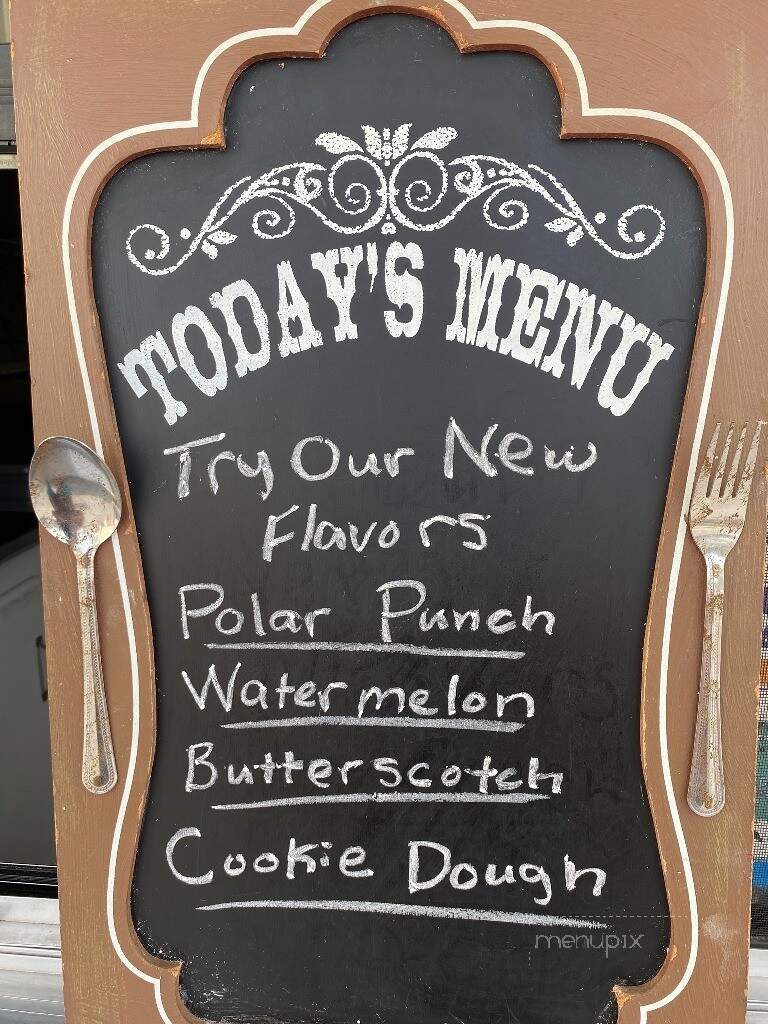 TODAY'S MENU
Try Our New
Flavors
Polar Punch
Watermelon
Butterscotch
Cookie Dough
menupix